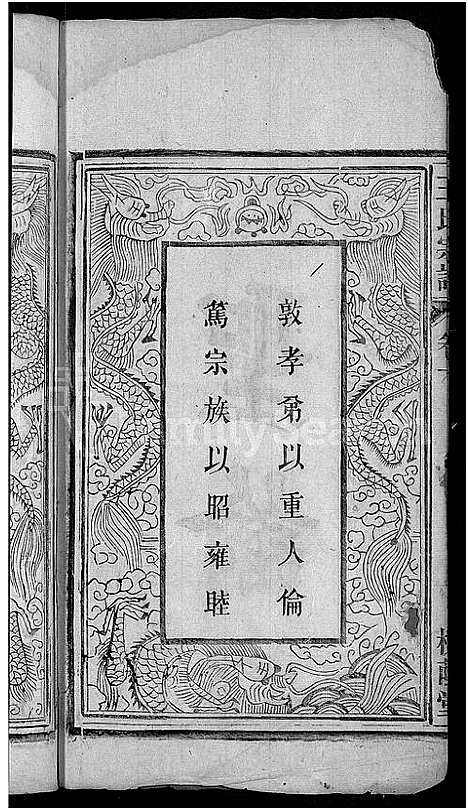 敦孝弟以重人倫
篤宗族以昭雍睦
王氏宗譜
FamilySearch